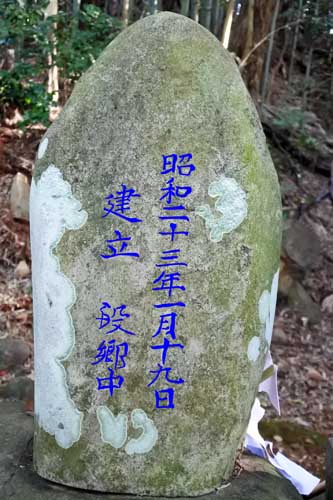 昭和二十三年一月十九日
建立 段郷中